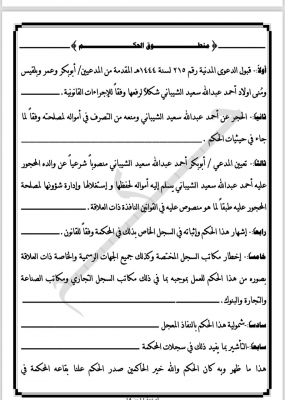 ﴿ منطـــــوق الحكـــــم ﴾
أولاً:- قبول الدعوى المدنية رقم ٢١٥ لسنة ١٤٤٤هـ المقدمة من المدعيين/ أبوبكر وعمر وبلقيس
ومُنى اولاد أحمد عبدالله سعيد الشيباني شكلاً لرفعها وفقاً للإجراءات القانونية .
ثانياً:- الحجر عن أحمد عبدالله سعيد الشيباني ومنعه من التصرف في أمواله لمصلحته وفقاً لما
جاء في حيثيات الحكم .
ثالثاً:- تعيين المدعي / أبوبكر أحمد عبدالله سعيد الشيباني منصوباً شرعياً عن والده المحجور
عليه أحمد عبدالله سعيد الشيباني يسلم إليه أمواله لحفظها و إستغلالها وإدارة شؤونها لمصلحة
المحجور عليه طبقاً لما هو منصوص عليه في القوانين النافذة ذات العلاقة .
رابعاً:- إشهار هذا الحكم وإثباته في السجل الخاص بذلك في المحكمة وفقاً للقانون .
خامساً:- إخطار مكاتب السجل المختصة وكذلك جميع الجهات الرسمية والخاصة ذات العلاقة
بصوره من هذا الحكم للعمل بموجبه بما في ذلك مكاتب السجل التجاري ومكاتب الصناعة
والتجارة والبنوك .
سادساً:- شمولية هذا الحكم بالنفاذ المعجل
سابعاً:- التأشير بما يفيد ذلك في سجلات المحكمة
هذا ما ظهر وبه كان الحكم والله خير الحاكمين صدر الحكم علنا بقاعه المحكمة في